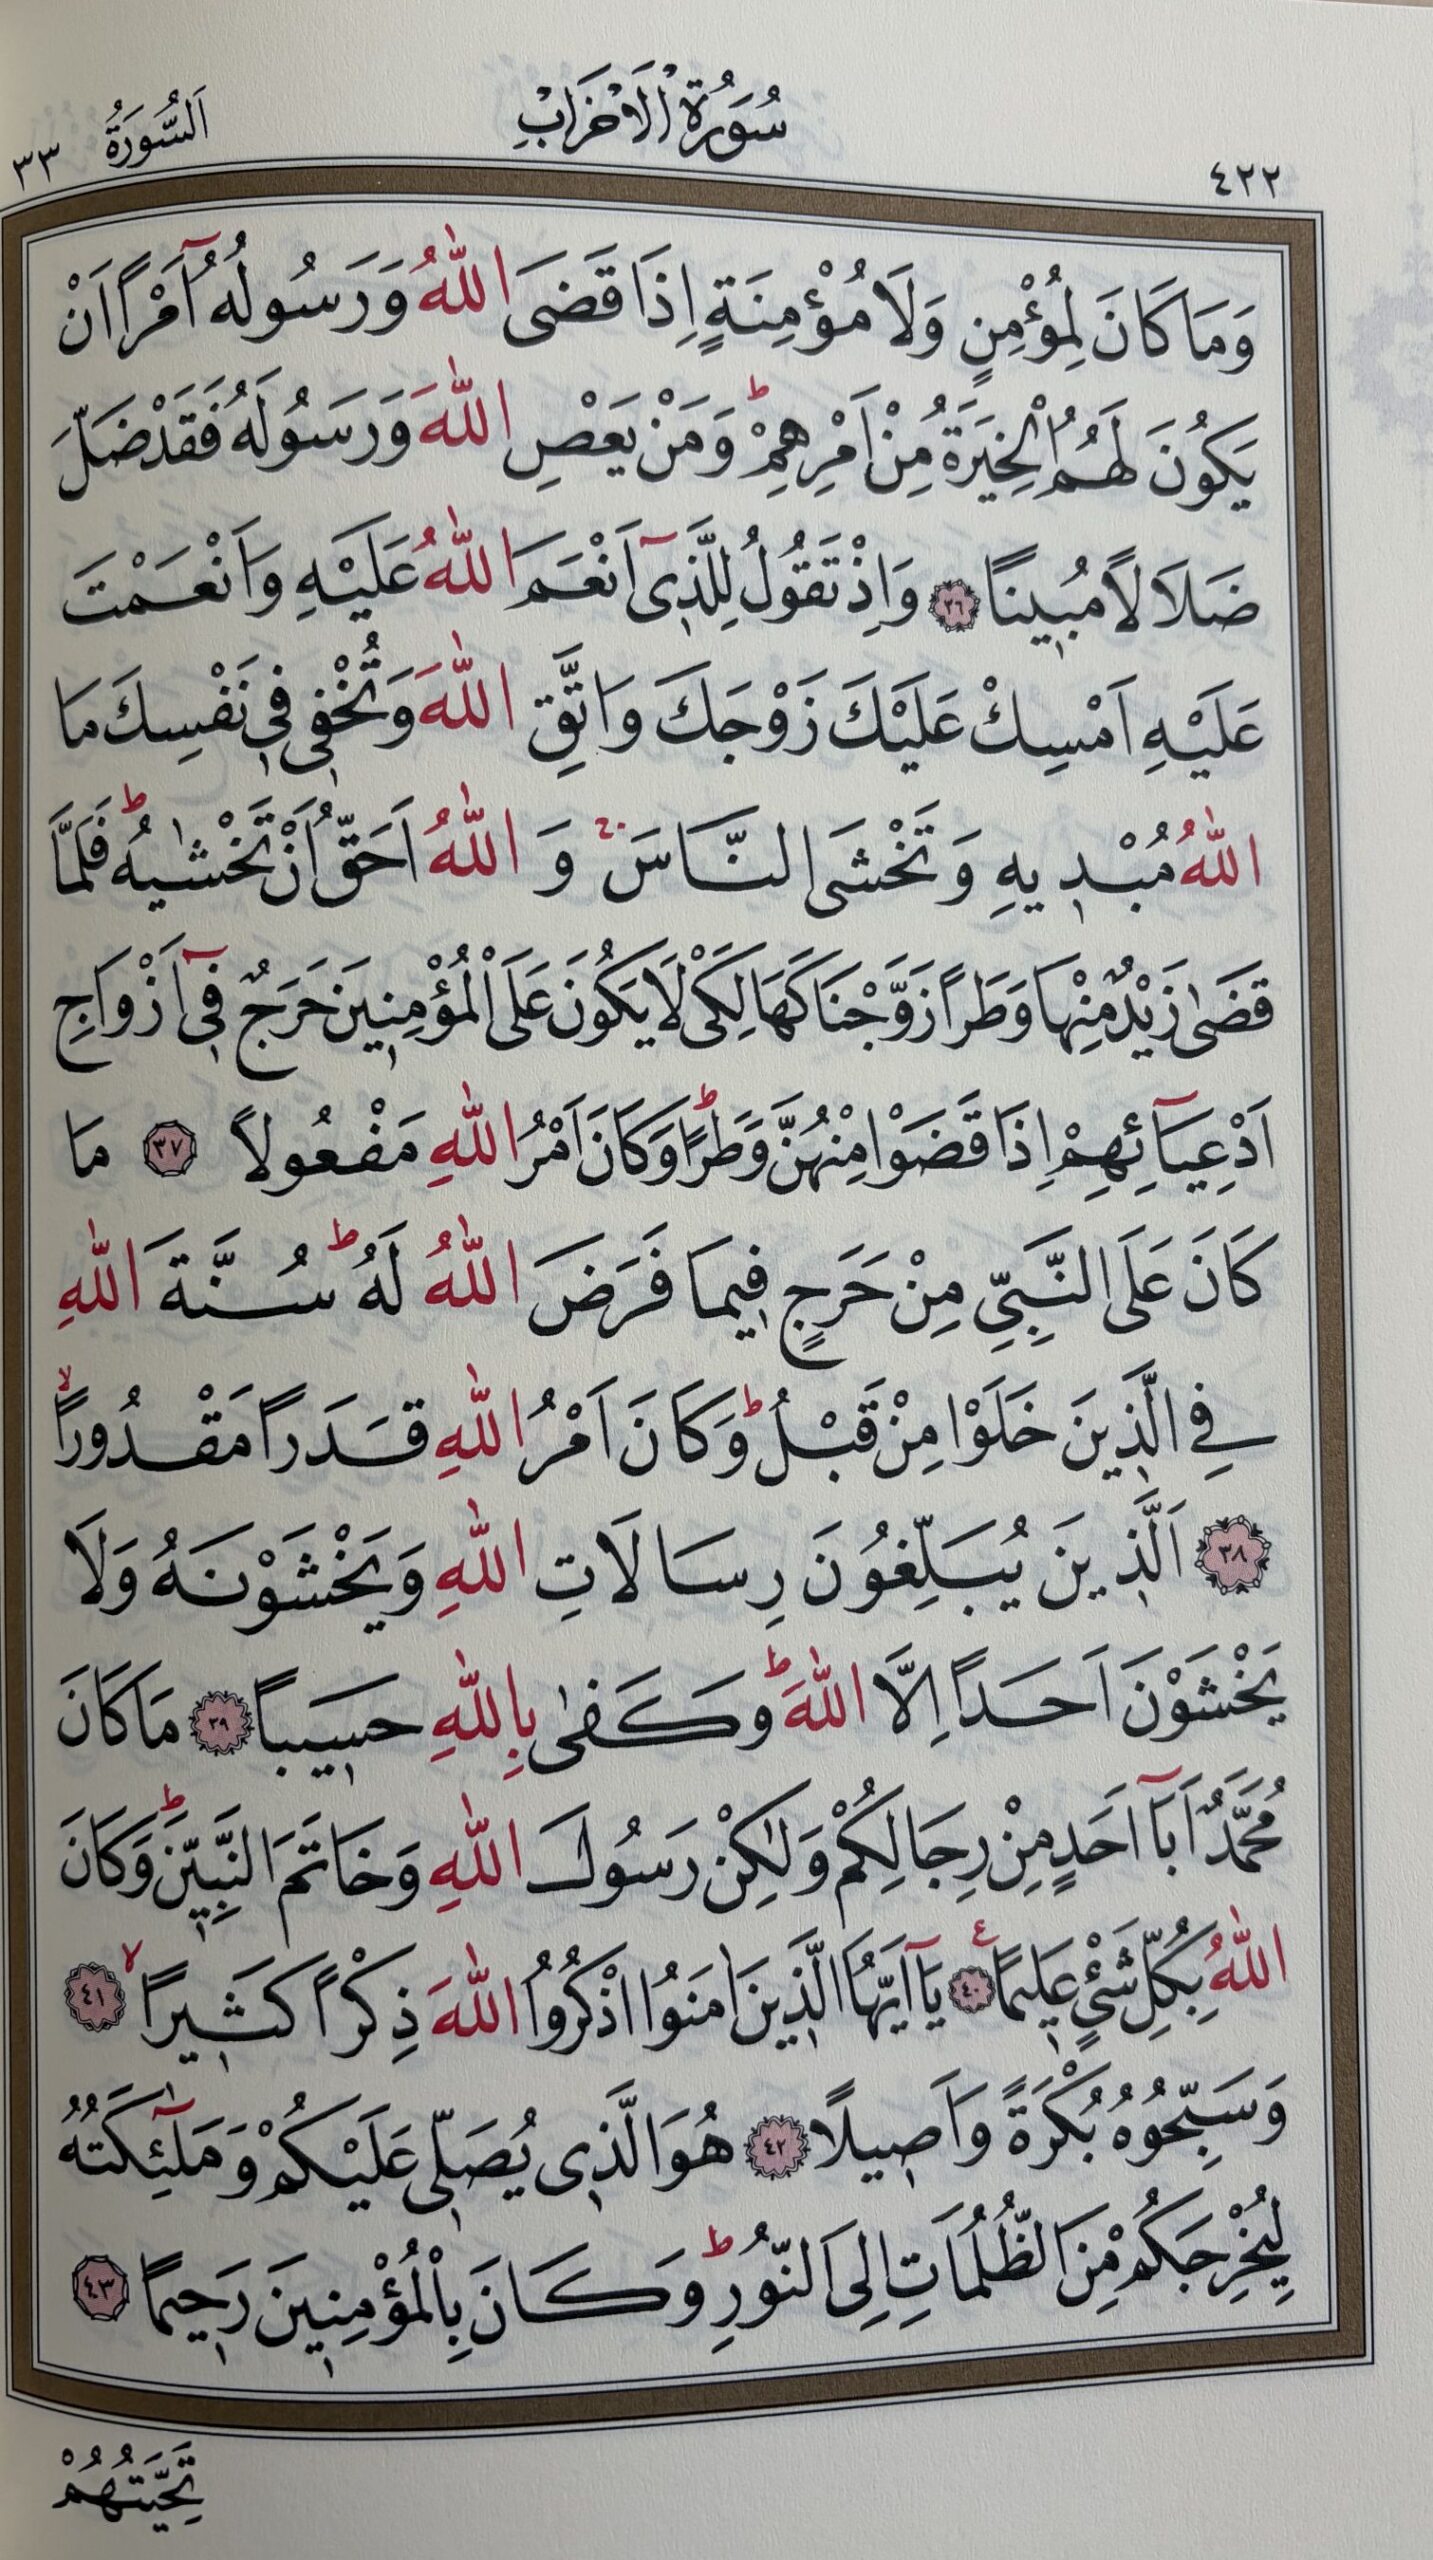 ٤٢٢ سُورَةُ الْاَحْزَابِ اَلسُّورَةُ ٣٣
وَمَا كَانَ لِمُؤْمِنٍ وَلَا مُؤْمِنَةٍ اِذَا قَضَى اللّٰهُ وَرَسُولُهُٓ اَمْراً اَنْ
يَكُونَ لَهُمُ الْخِيَرَةُ مِنْ اَمْرِهِمْۜ وَمَنْ يَعْصِ اللّٰهَ وَرَسُولَهُ فَقَدْ ضَلَّ
ضَلَالاً مُب۪يناً ٣٦ وَاِذْ تَقُولُ لِلَّذ۪ٓي اَنْعَمَ اللّٰهُ عَلَيْهِ وَاَنْعَمْتَ
عَلَيْهِ اَمْسِكْ عَلَيْكَ زَوْجَكَ وَاتَّقِ اللّٰهَ وَتُخْف۪ي ف۪ي نَفْسِكَ مَا
اللّٰهُ مُبْد۪يهِ وَتَخْشَى النَّاسَۚ وَاللّٰهُ اَحَقُّ اَنْ تَخْشٰيهُۜ فَلَمَّا
قَضٰى زَيْدٌ مِنْهَا وَطَراً زَوَّجْنَاكَهَا لِكَيْ لَا يَكُونَ عَلَى الْمُؤْمِن۪ينَ حَرَجٌ ف۪ٓي اَزْوَاجِ
اَدْعِيَٓائِهِمْ اِذَا قَضَوْا مِنْهُنَّ وَطَراًۜ وَكَانَ اَمْرُ اللّٰهِ مَفْعُولاً ٣٧ مَا
كَانَ عَلَى النَّبِيِّ مِنْ حَرَجٍ ف۪يمَا فَرَضَ اللّٰهُ لَهُۜ سُنَّةَ اللّٰهِ
فِي الَّذ۪ينَ خَلَوْا مِنْ قَبْلُۜ وَكَانَ اَمْرُ اللّٰهِ قَدَراً مَقْدُوراًۙ
٣٨ اَلَّذ۪ينَ يُبَلِّغُونَ رِسَالَاتِ اللّٰهِ وَيَخْشَوْنَهُ وَلَا
يَخْشَوْنَ اَحَداً اِلَّا اللّٰهَۜ وَكَفٰى بِاللّٰهِ حَس۪يباً ٣٩ مَا كَانَ
مُحَمَّدٌ اَبَٓا اَحَدٍ مِنْ رِجَالِكُمْ وَلٰكِنْ رَسُولَ اللّٰهِ وَخَاتَمَ النَّبِيّ۪نَۜ وَكَانَ
اللّٰهُ بِكُلِّ شَيْءٍ عَل۪يماً۟ ٤٠ يَٓا اَيُّهَا الَّذ۪ينَ اٰمَنُوا اذْكُرُوا اللّٰهَ ذِكْراً كَث۪يراًۙ ٤١
وَسَبِّحُوهُ بُكْرَةً وَاَص۪يلاً ٤٢ هُوَ الَّذ۪ي يُصَلّ۪ي عَلَيْكُمْ وَمَلٰٓئِكَتُهُ
لِيُخْرِجَكُمْ مِنَ الظُّلُمَاتِ اِلَى النُّورِۜ وَكَانَ بِالْمُؤْمِن۪ينَ رَح۪يماً ٤٣
تَحِيَّتُهُمْ